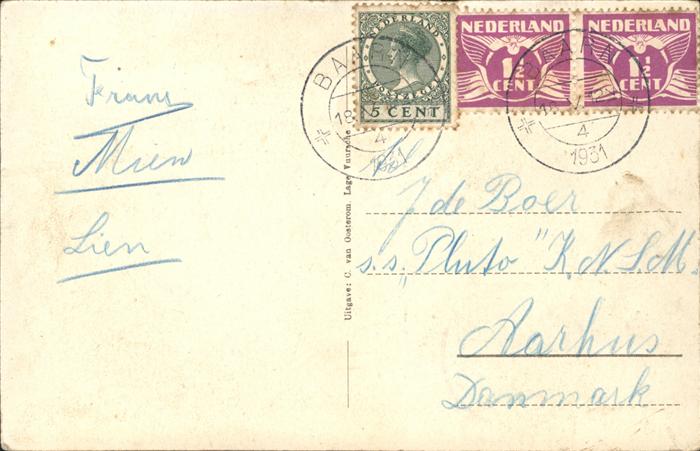 Frans
Mien
Lien
NEDERLAND
POSTZEGEL
5 CENT
NEDERLAND
1½
CENT
NEDERLAND
1½
CENT
BAARN
4
1931
BAARN
4
1931
Uitgave: C. van Oosterom. Lage Vuursche
J de Boer
s.s. "Pluto" K.N.S.M.
Aarhus
Danmark